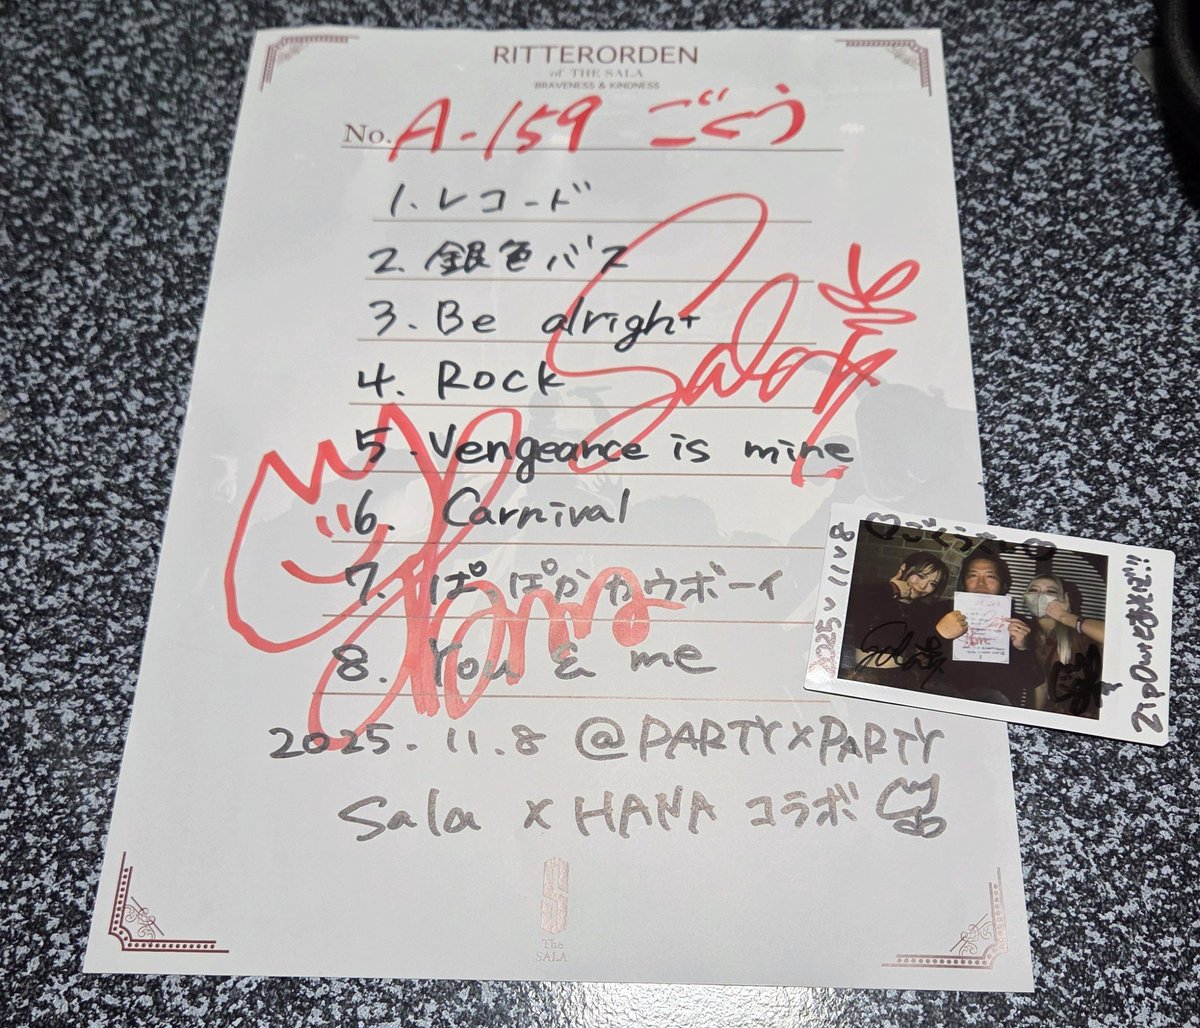 RITTERORDEN
of THE SALA
BRAVENESS & KINDNESS
No. A-159 ごくう
1. レコード
2. 銀色バス
3. Be alright
4. Rock
5. Vengeance is mine
6. Carnival
7. ぱっぱかカウボーイ
8. You & me
2025.11.8 @PARTY×PARTY
Sala × HANA コラボ
Sala
The
SALA
2025.11.8
ごくう